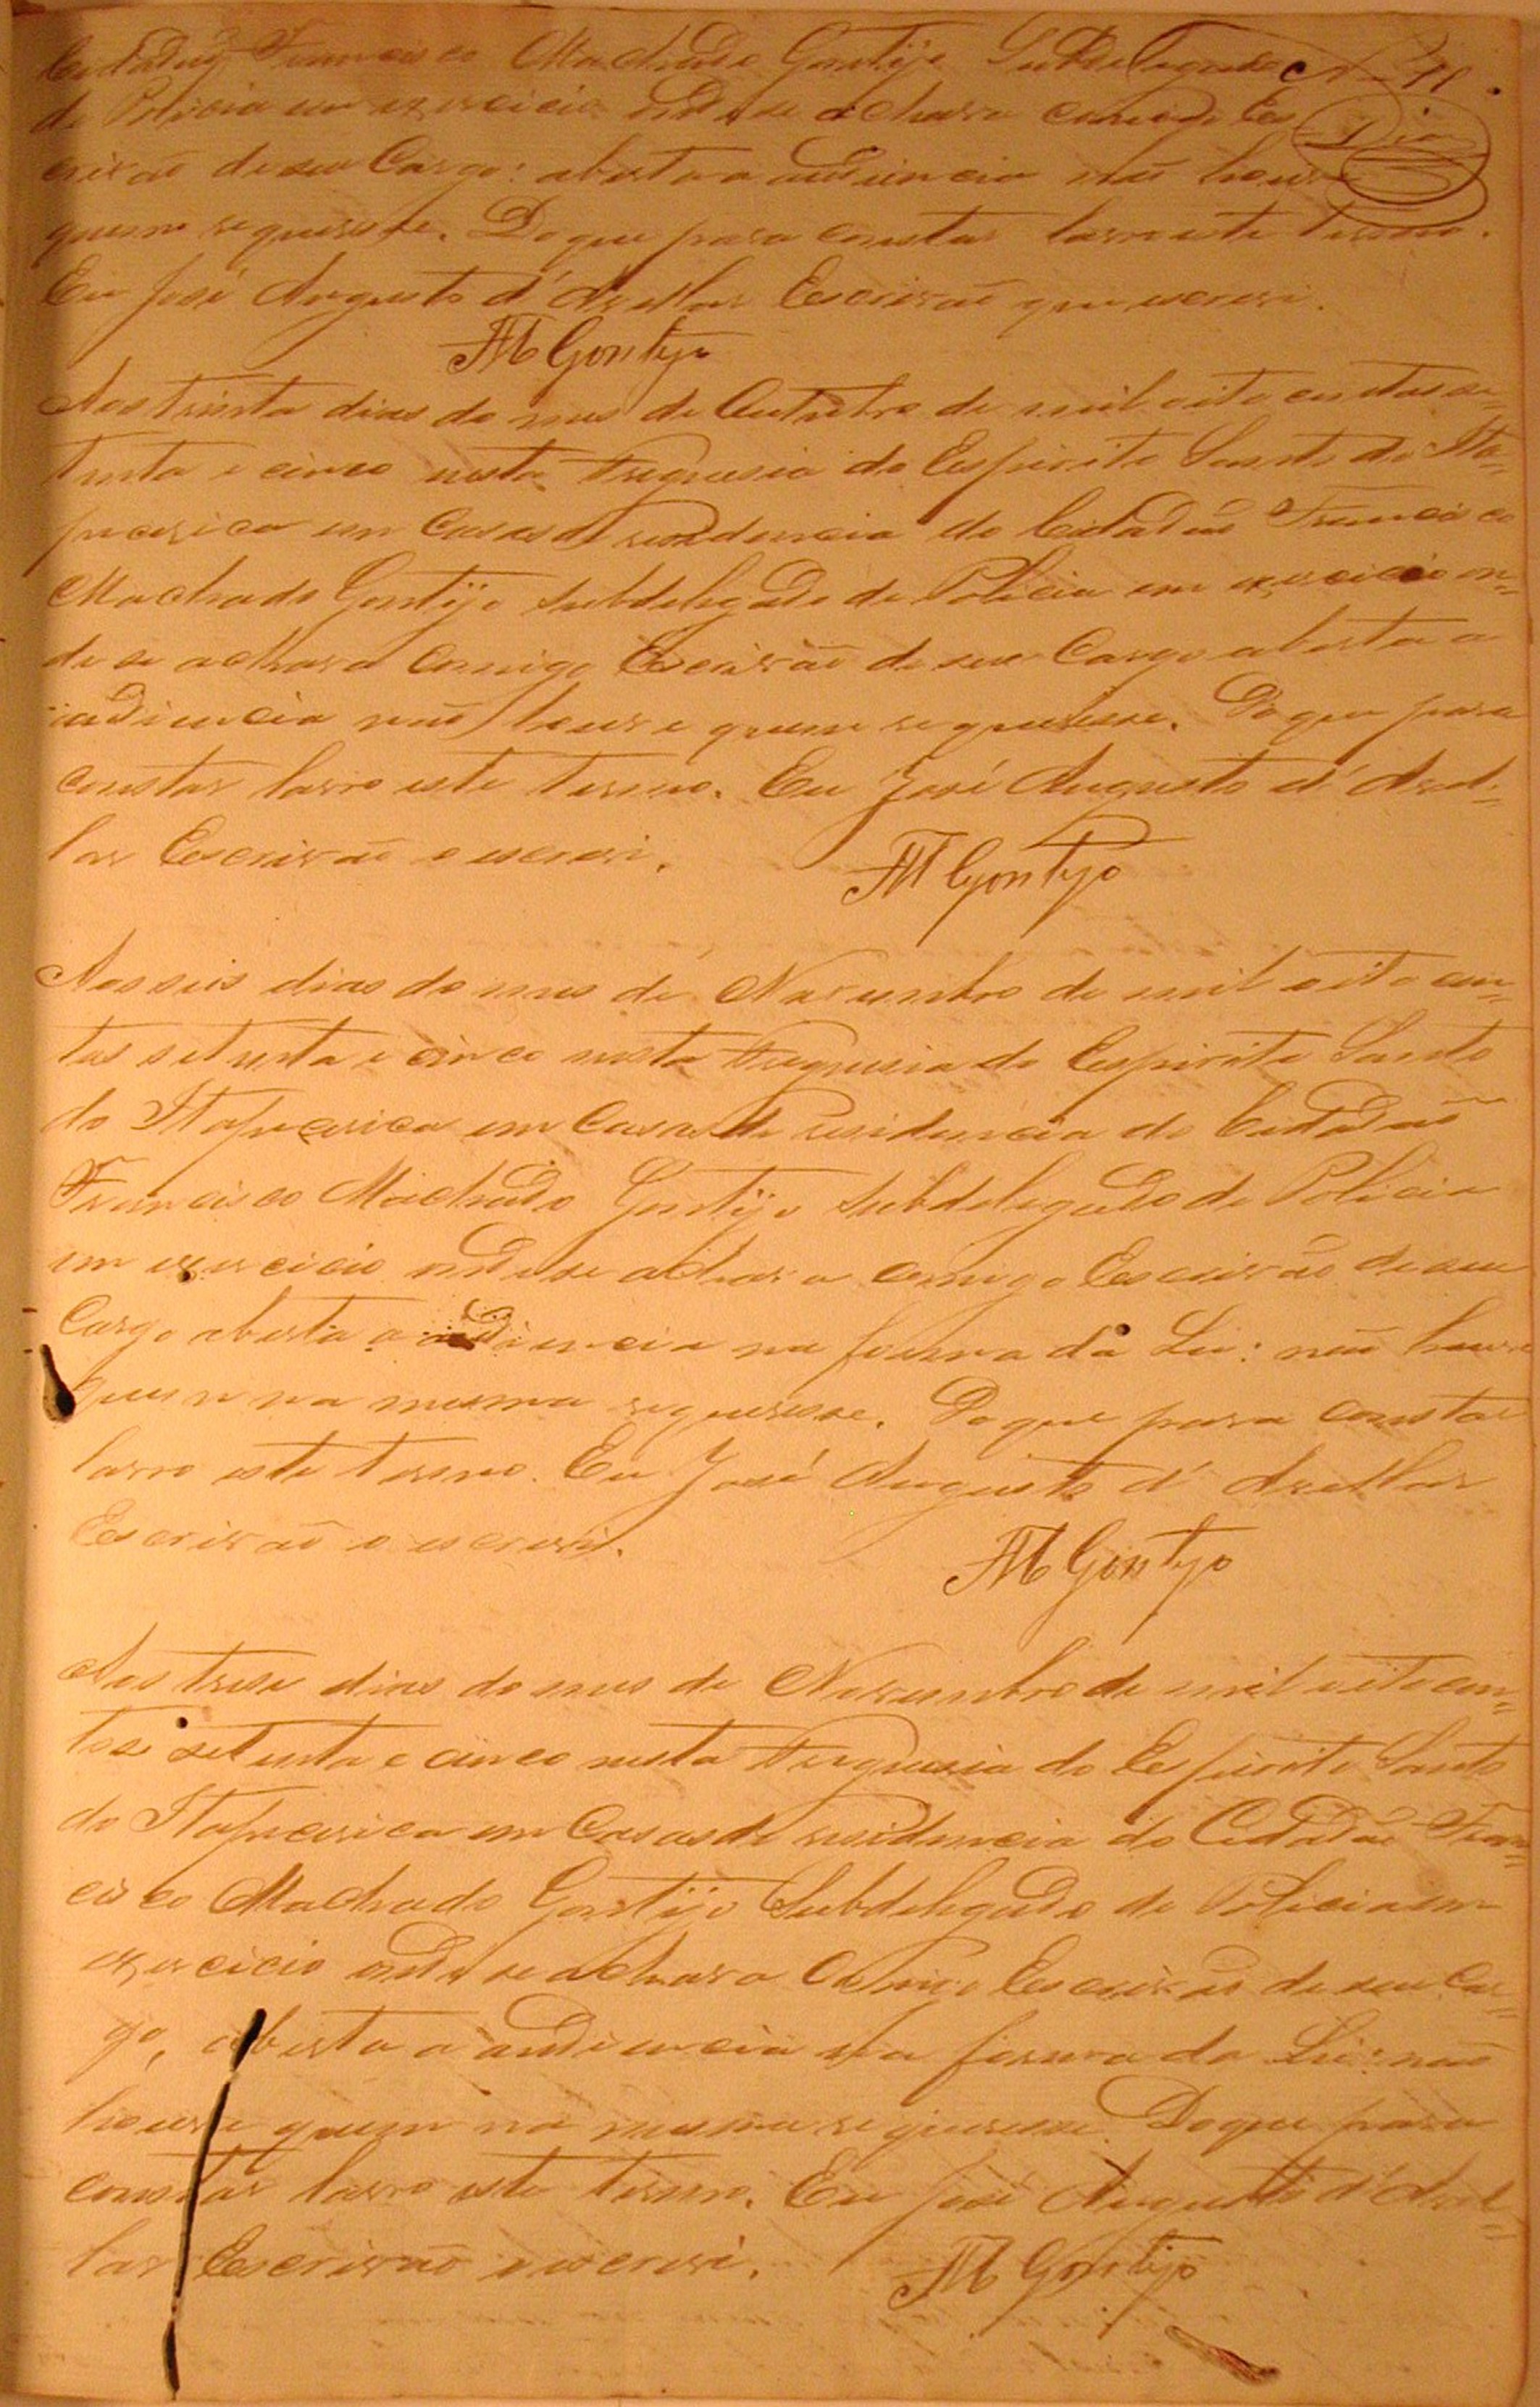 Cidadão Francisco Machado Gontijo Subdelegado
de Policia em exercicio onde se achava comigo Es
crivão de seu Cargo: aberta a audiencia não houve
quem requeresse. Do que para constar lavro este termo.
Eu José Augusto d'Avellar Escrivão que escrevi.
FM Gontijo
Aos trinta dias do mes de Outubro de mil oito centos se=
tenta e cinco nesta Freguesia do Espirito Santo do Ita=
pecerica em Casas de residencia do Cidadão Francisco
Machado Gontijo Subdelegado de Policia em exercicio on=
de se achava comigo Escrivão de seu Cargo aberta a
audiencia não houve quem requeresse. Do que para
constar lavro este termo. Eu José Augusto d'Avel=
lar Escrivão o escrevi.
FM Gontijo
Aos seis dias do mes de Novembro de mil oito cen=
tos setenta e cinco nesta Freguesia do Espirito Santo
do Itapecerica em Casas de residencia do Cidadão
Francisco Machado Gontijo Subdelegado de Policia
em exercicio onde se achava comigo Escrivão de seu
Cargo aberta a audiencia na forma da Lei: não houve
quem na mesma requeresse. Do que para constar
lavro este termo. Eu José Augusto d'Avellar
Escrivão o escrevi.
FM Gontijo
Aos trese dias do mes de Novembro de mil oito cen=
tos setenta e cinco nesta Freguesia do Espirito Santo
do Itapecerica em Casas de residencia do Cidadão Fran=
cisco Machado Gontijo Subdelegado de Policia em
exercicio onde se achava Comigo Escrivão de seu Car=
go, aberta a audiencia na forma da Lei: não
houve quem na mesma requeresse. Do que para
constar lavro este termo. Eu José Augusto d'Avel=
lar Escrivão o escrevi.
FM Gontijo